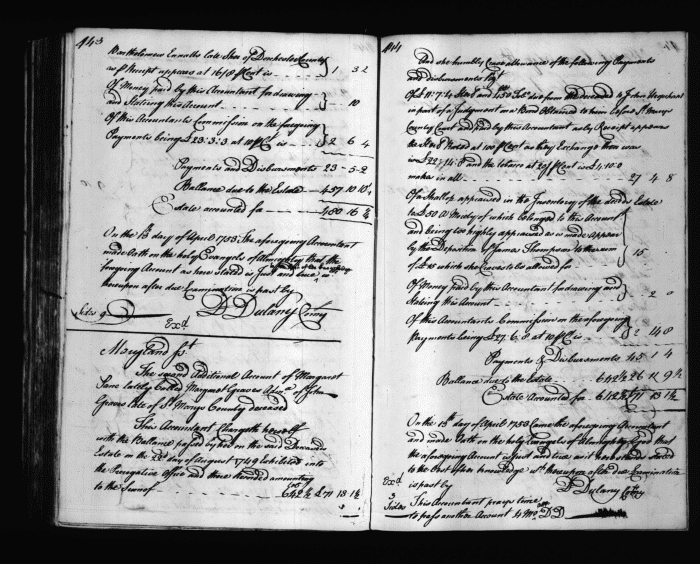 443
Bartholomew Ennalls late Shff of Dorchester County
as p Receipt appears at 16/8 p Ct is 1 3 2
Of Money paid by this Accountant for drawing
and Stateing this Account 10
Of this Accountants Commission on the foregoing
Payments being £23:3:3 at 10 p Ct is 2 6 4
Payments and Disbursements 23-5-2
Ballance due to the Estate 457 10
Estate accounted for 480 16
On the day of April 1753: The aforegoing Accountant
made Oath on the holy Evangels of Almighty that the
foregoing Account as here stated is Just and true
thereupon after due Examination is past by
D Dulany Comry
Sides 9
Exd
Maryland ss.
The second Additional Account of Margaret
Lane lately Called Margaret Graves Admx of John
Graves late of St Marys County deceased
This Accountant Chargeth herself
with the Ballance passed by her on the said Deceaseds
Estate in the day of August 1749 Exhibited into
the Perogative Office and there Recorded amounting
to the Sum of 642 £71 13 1½
444
And she humbly Craves allowance of the following Payments
and disbursements
Of £11:7:7 Sterl and due from the deceased to John
in part of a Judgment on a Bond Obtained to him Est St Marys
County Court and paid by this Accountant as by Receipt appears
the Sterl Rated at 100 p Ct as they Exchange then was
is £22:15:8 and the tobacco at p Ct is £4:10:0
makes in all 27 4 8
Of a Shallop appraised in the Inventory of the deceds Estate
to £50 A Moiety of which belonged to this Accountant
and being too highly appraised as is made appear
by the Deposition of James Thompson to the sum
of £15 which she Craves to be allowed for 15
Of Money paid by this Accountant for drawing and
Stateing this Account 2 0
Of this Accountants Commission on the aforegoing
Payments being £27:6:8 at 10 p Ct is 2 14 8
Payments & Disbursements 45 1 4
Ballance due to the Estate 642½ 26 11 9½
Estate Accounted for 642½ 71 13 1½
On the day of April 1753 Came the aforegoing Accountant
and made Oath on the holy Evangels of Almighty God that
the aforegoing Account is just and true as it here stands stated
to the best of her knowledge thereupon after due Examination
is past by
D Dulany Comry
Exd
3
Sides
This Accountant prays time
to pass another Account
D D